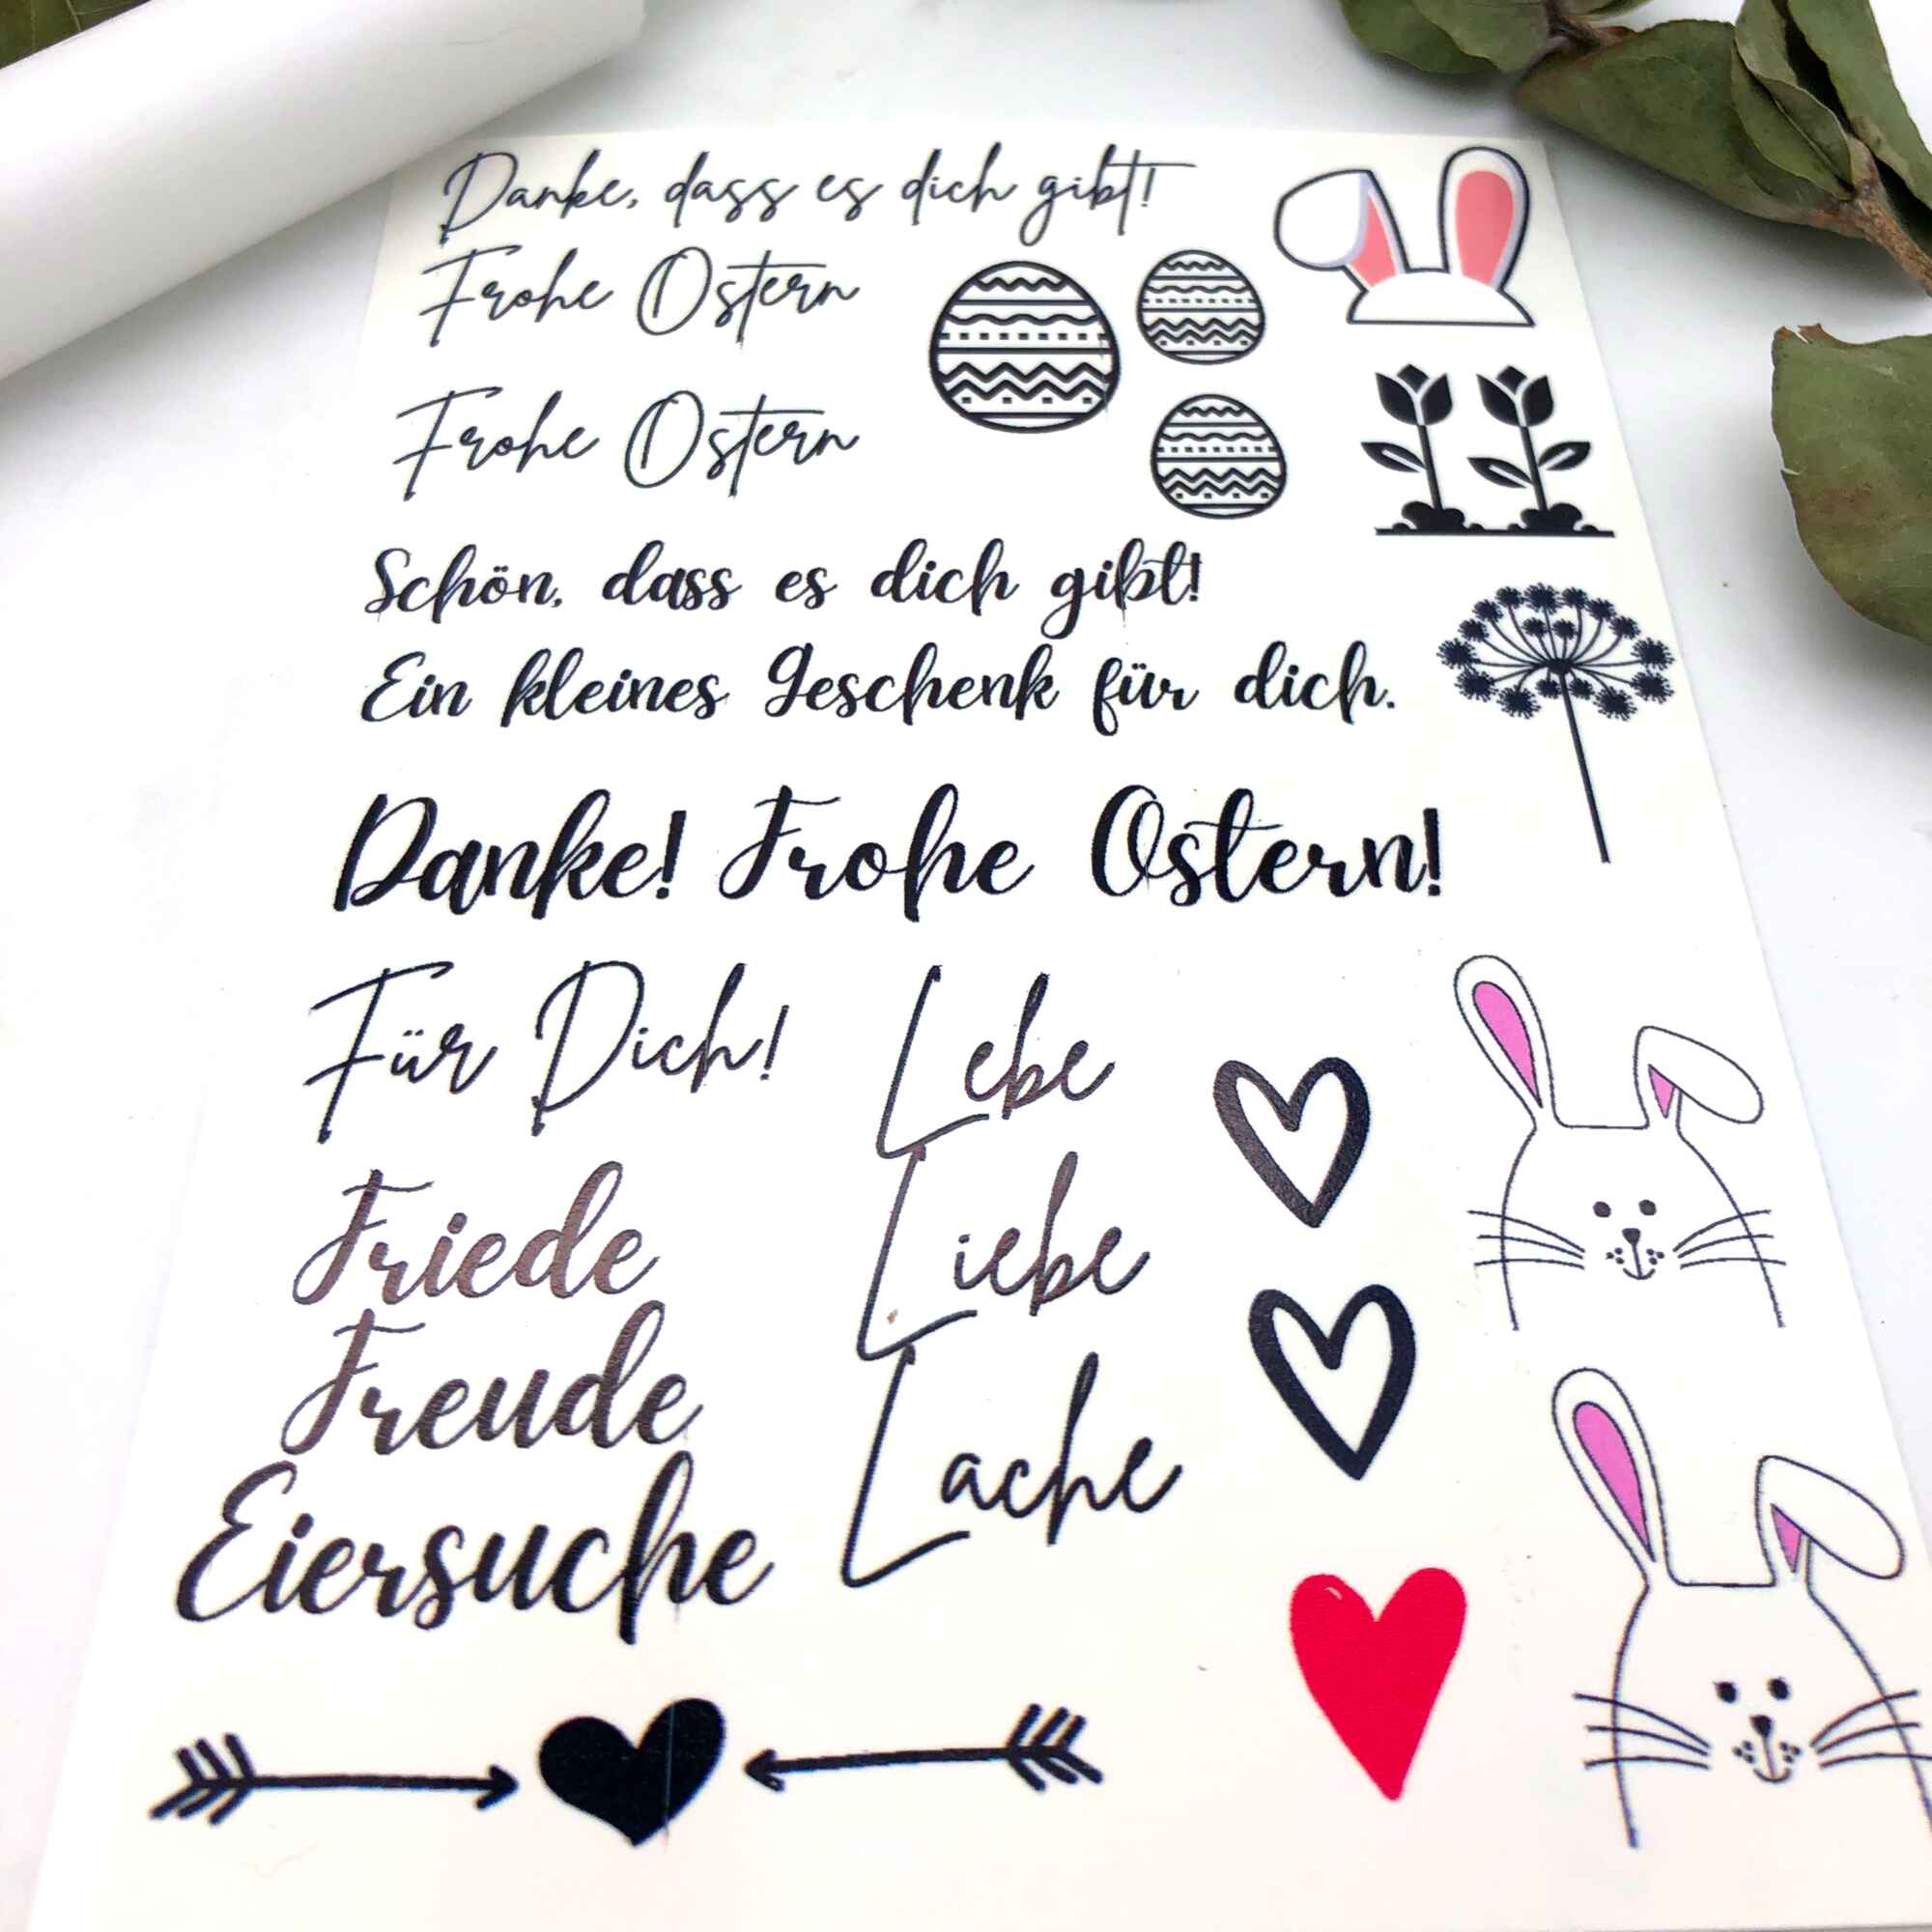 Danke, dass es dich gibt!
Frohe Ostern
Frohe Ostern
Schön, dass es dich gibt!
Ein kleines Geschenk für dich.
Danke! Frohe Ostern!
Für Dich!
Lebe
Friede
Liebe
Freude
Lache
Eiersuche